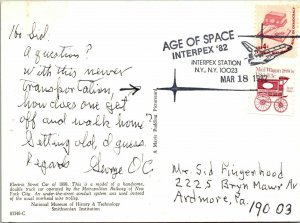 Ho Sid
A question?
With this newer
transportation,
how does one get
off and walk home?
Getting old, I guess.
Regards George O'C.
Electric Street Car of 1898. This is a model of a handsome,
double truck car operated by the Metropolitan Railway of New
York City. An under-the-street conduit system was used instead
of the usual overhead wire trolley.
National Museum of History & Technology
Smithsonian Institution
81346-C
AGE OF SPACE
INTERPEX '82
INTERPEX STATION
N.Y., N.Y. 10023
MAR 18 1982
Mail Wagon 1880s
Mr. Sid Fingerhood
2225 Bryn Mawr Av
Ardmore, Pa.
19003